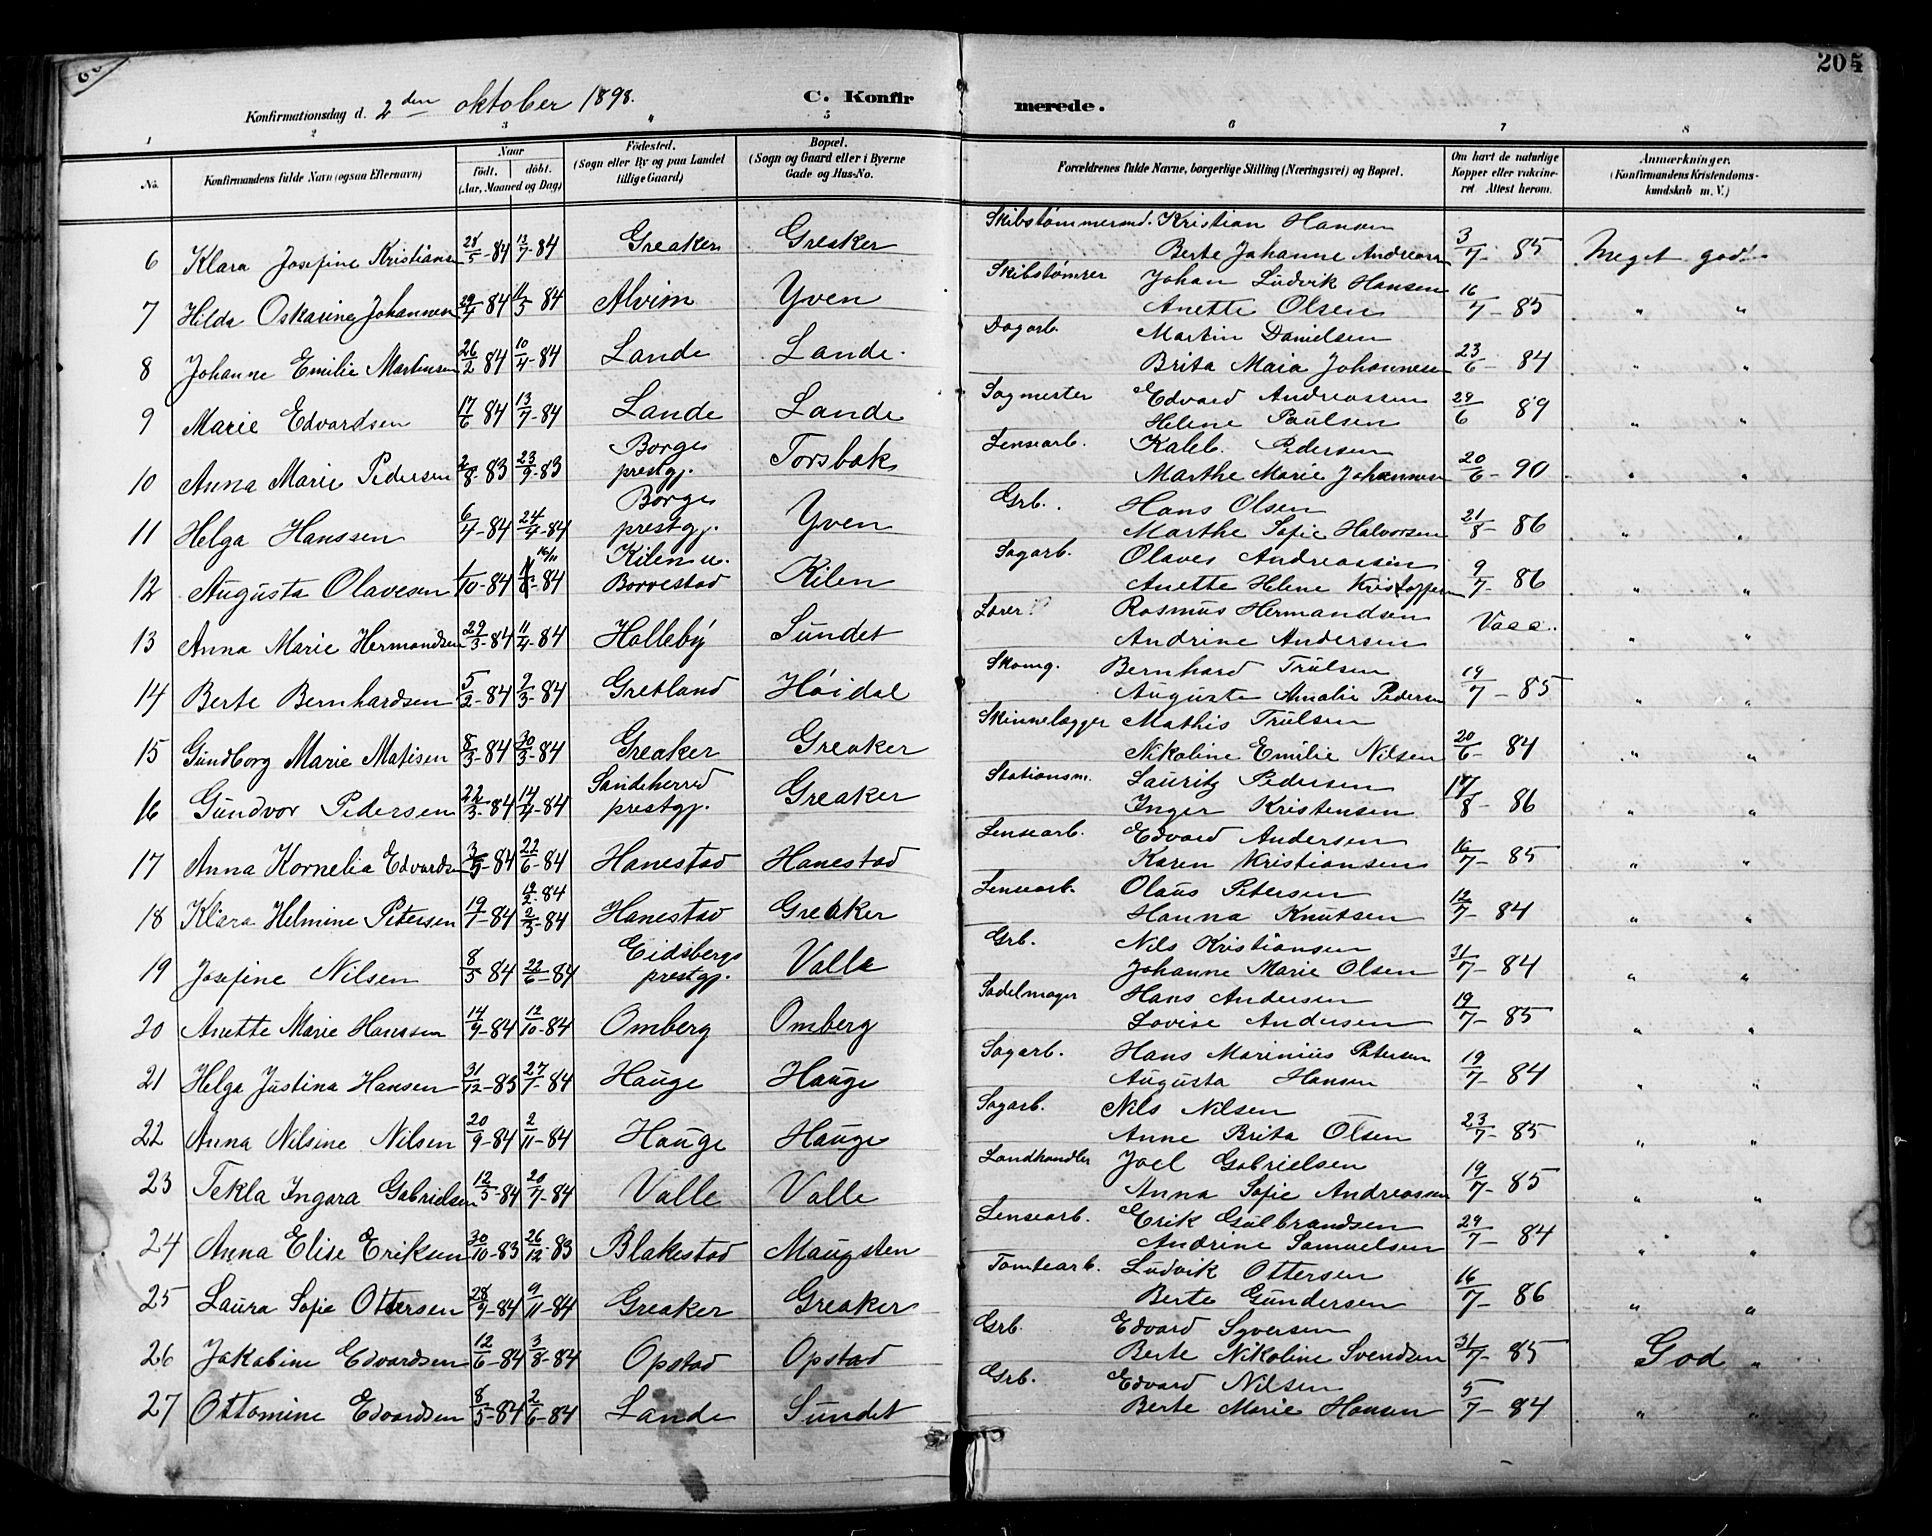 205
Konfirmationsdag d. 2den oktober 1898.
C. Konfirmerede.
1 2 3 " 5 6 7 8
No. Konfirmandens fulde Navn (ogsaa Efternavn) Naar født. døbt. (Aar, Maaned og Dag) Fødested. (Sogn eller By og paa Landet tillige Gaard) Bopæl. (Sogn og Gaard eller i Byerne Gade og Hus-No. Forældrenes fulde Navne, borgerlige Stilling (Næringsvei) og Bopæl. Om havt de naturlige Kopper eller vaccineret Attest herom. Anmærkninger. (Konfirmandens Kristendomskundskab m. V.)
6 Klara Josefine Kristiansen 28/5-84 13/7-84 Greaker Greaker Skibstømmermd. Kristian Hansen
Berte Johanne Andreasen 3/7-85 Meget godt
7 Hilda Oskarine Johannsen 29/4-84 11/5 84 Alvim Yven Skibstømrer Johan Ludvik Hansen
Anette Olsen 16/7-85 " "
8 Johanne Emilie Martinsen 26/2 84 10/4-84 Lande Lande. Dagarb. Martin Danielsen
Brita Maia Johannesen 23/6-84 " "
9 Marie Edvardsen 17/6 84 13/7-84 Lande Lande Sagmester Edvard Andreassen
Helene Paulsen 29/6 89 " "
10 Anna Marie Pedersen 2/8-83 23/9-83 Borge prestgj. Torsbak Lensearb. Kaleb. Pedersen
Marthe Marie Johannesen 20/6-90 " "
11 Helga Hanssen 6/4-84 24/4-84 Borge prestgj. Yven Grb. Hans Olsen
Marthe Sofie Halvorsen 21/8-86 " "
12 Augusta Olavesen 1/10-84 16/11 84 Kilen u. Borrestad Kilen Sagarb. Olaves Andreassen
Anette Helene Kristoffersen 9/7-86 " "
13 Anna Marie Hermandsen 29/3-84 11/4-84 Halleby Sundet Lærer Rasmus Hermandsen
Andrine Andersen Vacc. " "
14 Berte Bernhardsen 5/2-84 2/3-84 Gretland Høidal Skomg. Bernhard Trulsen
Auguste Amalie Pedersen 19/7-85 " "
15 Gundborg Marie Matisen 8/3-84 30/3-84 Greaker Greaker Skinnelægger Mathis Trulsen
Nikoline Emilie Nilsen 20/6-84 " "
16 Gundvor Pedersen 22/3-84 14/4-84 Sandeherred prestgj. Greaker Stationsm. Lauritz Pedersen
Inger Kristensen 17/8-86 " "
17 Anna Kornelia Edvardsen 3/5-84 22/6-84 Hanestad Hanestad Lensearb. Edvard Andersen
Karen Kristiansen 16/7-85 " "
18 Klara Helmine Petersen 19/7-84 2/3-84 Hanestad Greaker Lensearb. Olaus Petersen
Hanna Knutsen 12/7-84 " "
19 Josefine Nilsen 8/5-84 22/6-84 Eidsbergs prestgj. Valle Grb. Nils Kristiansen
Johanne Marie Olsen 31/7-84 " "
20 Anette Marie Hanssen 14/9-84 12/10-84 Omberg Omberg Sadelmager Hans Andersen
Lovise Andersen 19/7-85 " "
21 Helga Justina Hansen 31/12-83 27/7-84 Hauge Hauge Sagarb. Hans Marinius Petersen
Augusta Hansen 19/7-84 " "
22 Anna Nilsine Nilsen 20/9-84 2/11-84 Hauge Hauge Sagarb. Nils Nilsen
Anne Brita Olsen 23/7-85 " "
23 Tekla Ingara Gabrielsen 12/5-84 20/7-84 Valle Valle Landhandler Joel Gabrielsen
Anna Sofie Andreassen 19/7-85 " "
24 Anna Elise Eriksen 30/10-83 26/12-83 Blakestad Maugsten Lensearb. Erik Gulbrandsen
Andrine Samuelsen 29/7-84 " "
25 Laura Sofie Ottersen 28/9-84 9/11-84 Greaker Greaker Tomtearb. Ludvik Ottersen
Berte Gundersen 16/7-86 " "
26 Jakobine Edvardsen 12/6-84 3/8-84 Opstad Opstad Grb. Edvard Syversen
Berte Nikoline Svendsen 31/7-85 God "
27 Ottomine Edvardsen 8/5-84 2/6-84 Lande Sundet Grb. Edvard Nilsen
Berte Marie Hansen 5/7-84 " "